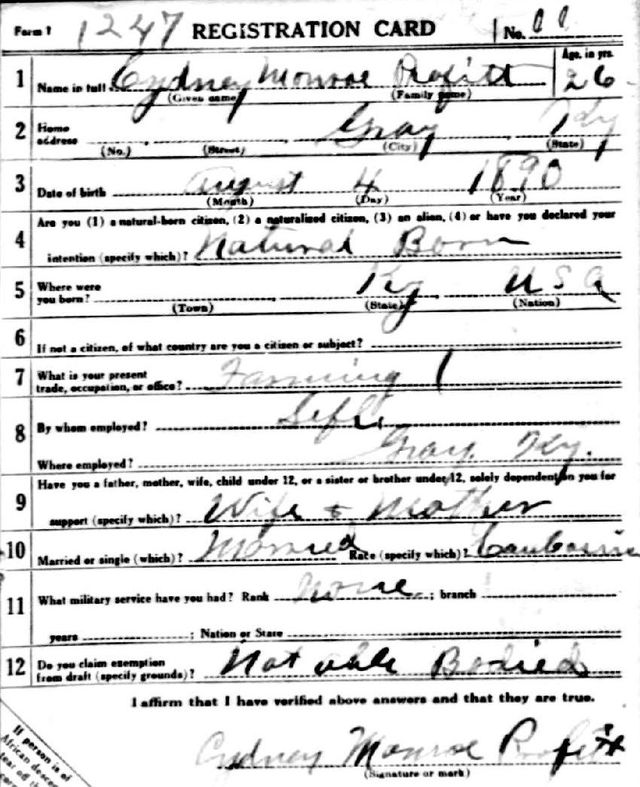 Form 1 1247 REGISTRATION CARD No. 11
1 Name in full Cydney Monroe Profitt Age, in yrs. 26
(Given name) (Family name)
2 Home address Gray Ky
(No.) (Street) (City) (State)
3 Date of birth August 4 1890
(Month) (Day) (Year)
4 Are you (1) a natural-born citizen, (2) a naturalized citizen, (3) an alien, (4) or have you declared your
intention (specify which)? Natural Born
5 Where were you born? Ky USA
(Town) (State) (Nation)
6 If not a citizen, of what country are you a citizen or subject?
7 What is your present trade, occupation, or office? Farming
8 By whom employed? Self
Where employed? Gray Ky.
9 Have you a father, mother, wife, child under 12, or a sister or brother under 12, solely dependent on you for
support (specify which)? Wife & Mother
10 Married or single (which)? Married Race (specify which)?
11 What military service have you had? Rank None ; branch
years ; Nation or State
12 Do you claim exemption from draft (specify grounds)? Not able Bodied
I affirm that I have verified above answers and that they are true.
Cydney Monroe Profitt
(Signature or mark)
If person is of
African
tear off